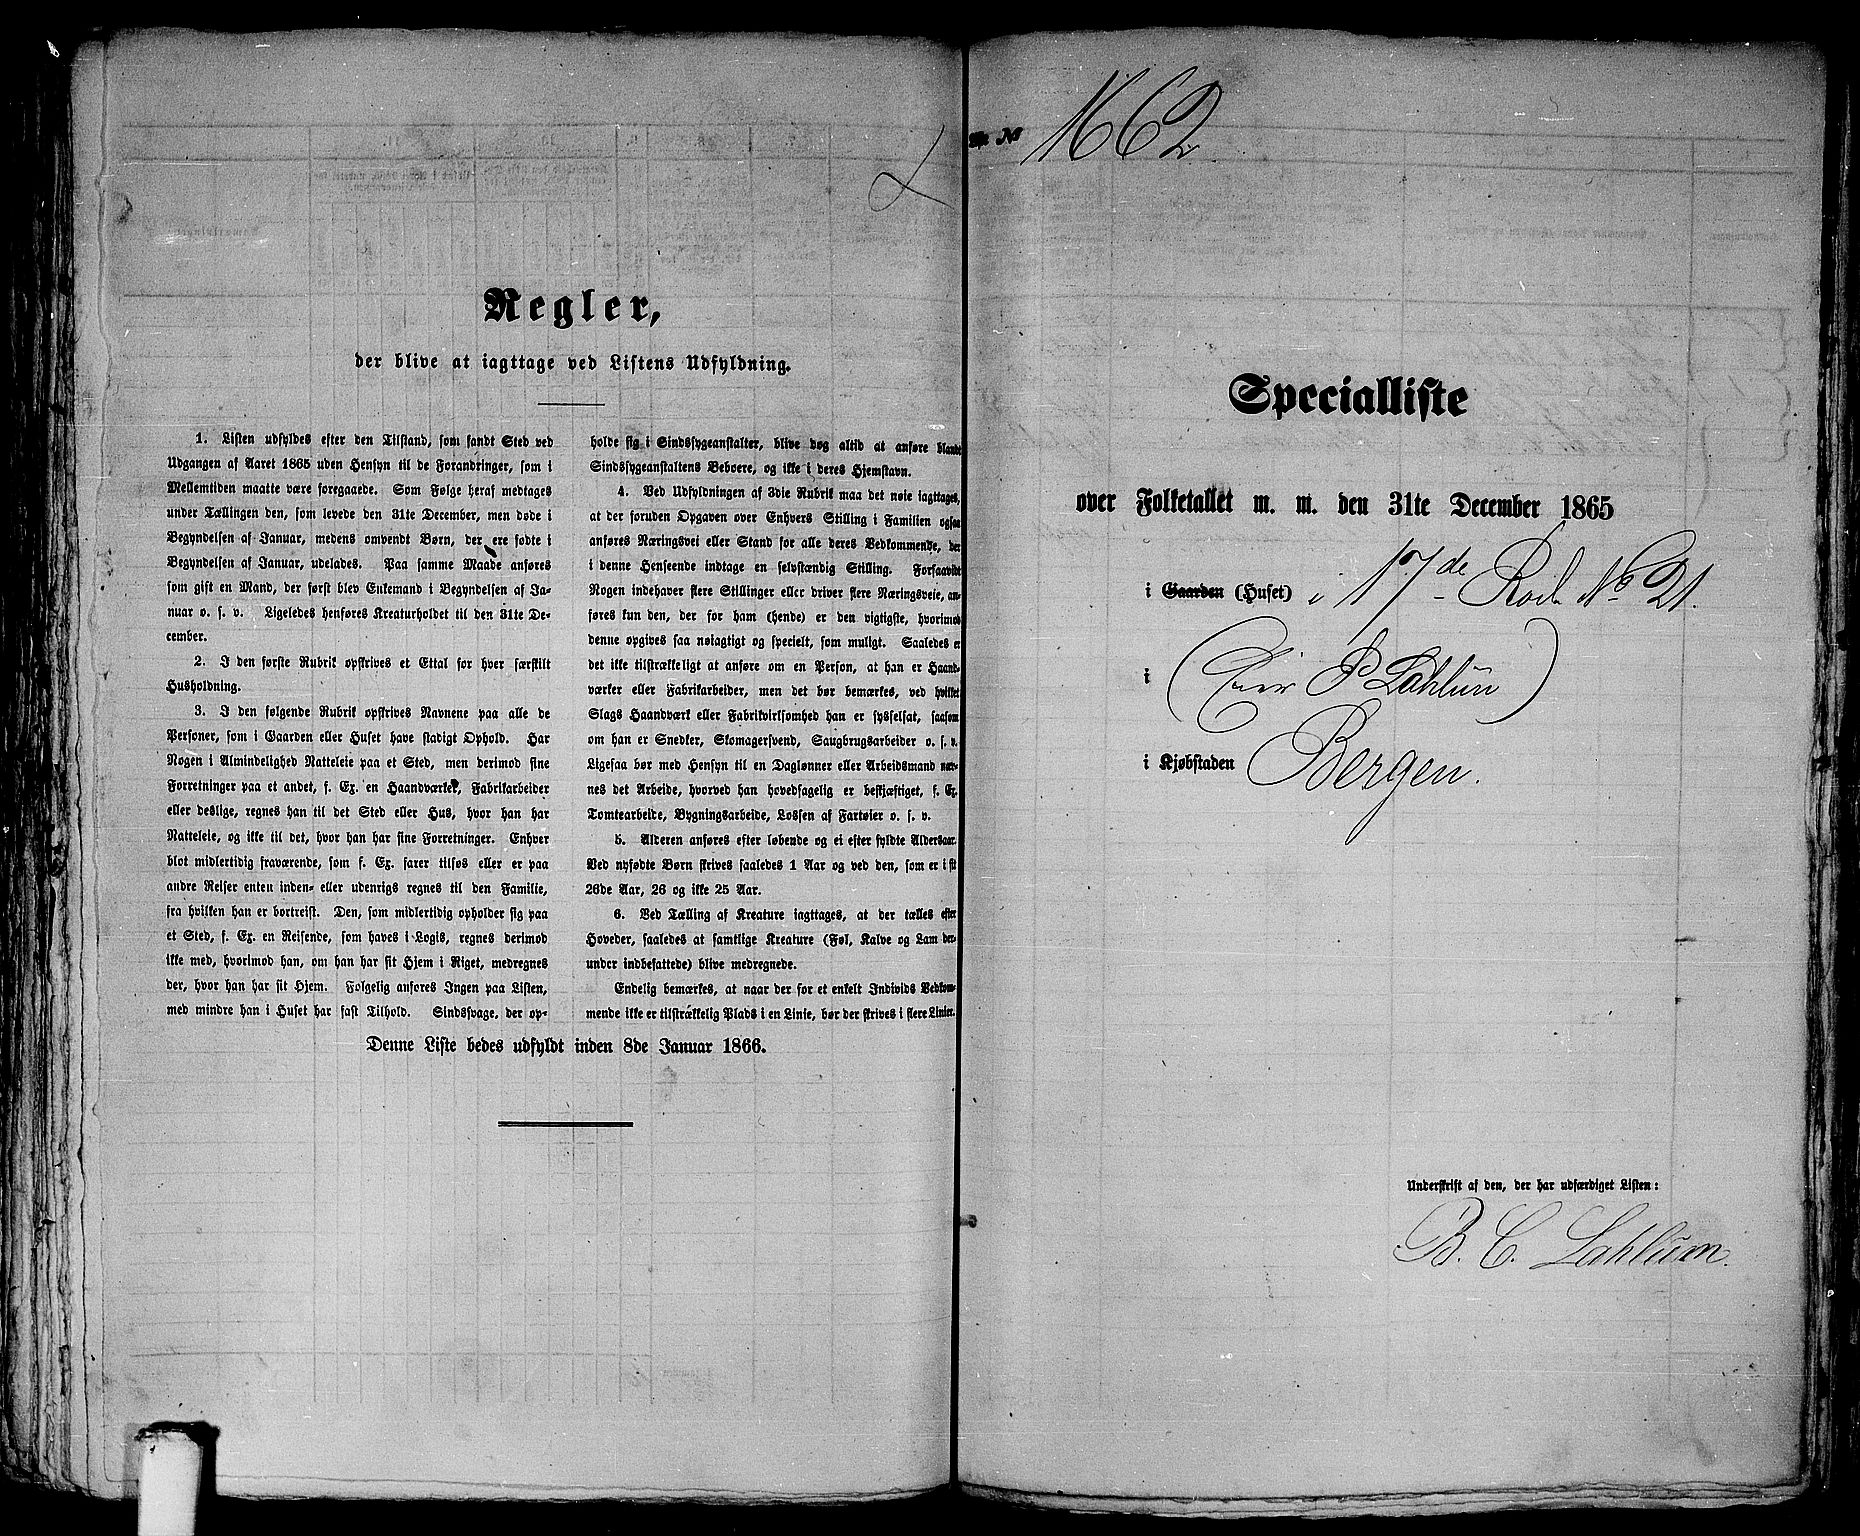 Regler,
der blive at iagttage ved Listens Udfyldning.
1. Listen udfyldes efter den Tilstand, som fandt Sted ved
Udgangen af Aaret 1865 uden Hensyn til de Forandringer, som i
Mellemtiden maatte være foregaaede. Som Følge heraf medtages
under Tællingen den, som levede den 31te December, men døde i
Begyndelsen af Januar, medens omvendt Børn, der ere fødte i
Begyndelsen af Januar, udelades. Paa samme Maade anføres
som gift en Mand, der først blev Enkemand i Begyndelsen af Ja-
nuar o. s. v. Ligeledes henføres Kreaturholdet til den 31te De-
cember.
2. I den første Rubrik opskrives et Ettal for hver særskilt
Husholdning.
3. I den følgende Rubrik opskrives Navnene paa alle de
Personer, som i Gaarden eller Huset have stadigt Ophold. Har
Nogen i Almindelighed Natteleie paa et Sted, men derimod sine
Forretninger paa et andet, f. Ex. en Haandværker, Fabrikarbeider
eller deslige, regnes han til det Sted eller Hus, hvor han har
Natteleie, og ikke til det, hvor han har sine Forretninger. Enhver
blot midlertidig fraværende, som f. Ex. farer tilsøs eller er paa
andre Reiser enten inden- eller udenrigs regnes til den Familie,
fra hvilken han er bortreist. Den, som midlertidig opholder sig paa
et Sted, f. Ex. en Reisende, som haves i Logis, regnes derimod
ikke med, hvorimod han, om han har sit Hjem i Riget, medregnes
der, hvor han har sit Hjem. Følgelig anføres Ingen paa Listen,
med mindre han i Huset har fast Tilhold. Sindssvage, der op-
holde sig i Sindssygeanstalter, blive dog altid at anføre blandt
Sindssygeanstaltens Beboere, og ikke i deres Hjemstavn.
4. Ved Udfyldningen af 3die Rubrik maa det nøie iagttages,
at der foruden Opgaven over Enhvers Stilling i Familien ogsaa
anføres Næringsvei eller Stand for alle deres Vedkommende, der
i denne Henseende indtage en selvstændig Stilling. Forsaavidt
Nogen indehaver flere Stillinger eller driver flere Næringsveie, an-
føres kun den, der for ham (hende) er den vigtigste, hvorimod
denne opgives saa nøiagtigt og specielt, som muligt. Saaledes er
det ikke tilstrækkeligt at anføre om en Person, at han er Haand-
værker eller Fabrikarbeider, men det bør bemærkes, ved hvilket
Slags Haandværk eller Fabrikvirksomhed han er sysselsat, saasom
om han er Snedker, Skomagersvend, Saugbrugsarbeider o. s. v.
Ligesaa bør med Hensyn til en Daglønner eller Arbeidsmand næv-
nes det Arbeide, hvorved han hovedsagelig er beskjæftiget, f. Ex.
Tomtearbeide, Bygningsarbeide, Lossen af Fartøier o. s. v.
5. Alderen anføres efter løbende og ei efter fyldte Aldersaar.
Ved nyfødte Børn skrives saaledes 1 Aar og ved den, som er i sit
26de Aar, 26 og ikke 25 Aar.
6. Ved Tælling af Kreature iagttages, at der tælles efter
Hoveder, saaledes at samtlige Kreature (Føl, Kalve og Lam der-
under indbefattede) blive medregnede.
Endelig bemærkes, at naar der for et enkelt Individs Vedkom-
mende ikke er tilstrækkelig Plads i en Linie, bør der skrives i flere Linier.
Denne Liste bedes udfyldt inden 8de Januar 1866.
1662
Specialliste
over Folketallet m. m. den 31te December 1865
i Gaarden (Huset) i 17de Rode No 21.
i (Eier P Lahlün)
i Kjøbstaden Bergen.
Underskrift af den, der har udfærdiget Listen:
B. C. Lahlüm.